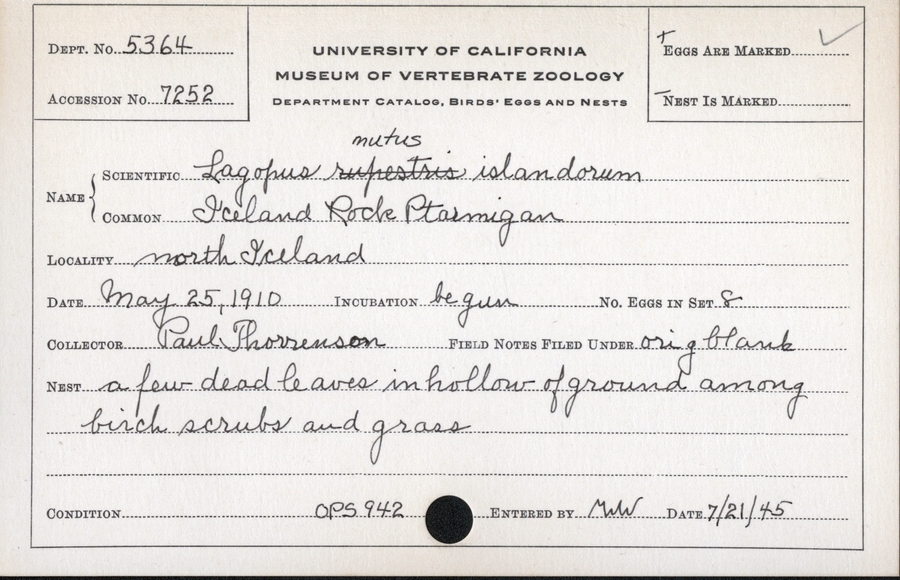 Dept. No. 5364
Accession No. 7252
UNIVERSITY OF CALIFORNIA
MUSEUM OF VERTEBRATE ZOOLOGY
Department Catalog, Birds' Eggs and Nests
+Eggs Are Marked ✓
-Nest Is Marked
mutus
Name { Scientific Lagopus rupestris islandorum
Common Iceland Rock Ptarmigan
Locality north Iceland
Date May 25, 1910 Incubation begun No. Eggs in Set 8
Collector Paul Thorrenson Field Notes Filed Under orig blank
Nest a few dead leaves in hollow of ground among
birch scrubs and grass
Condition OPS 942 Entered by MWW Date 7/21/45